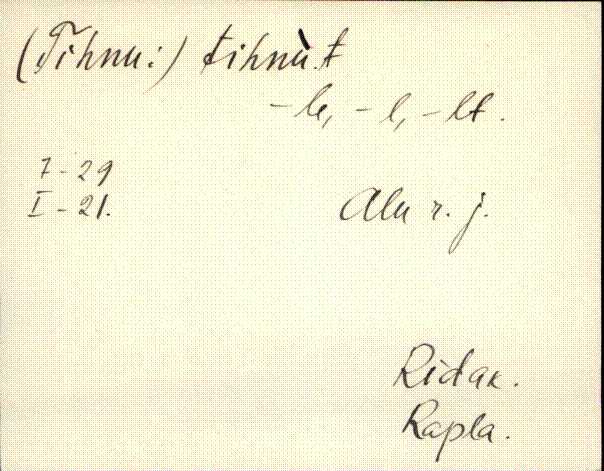 (Tihnu:) tihnùt
-le, -l, -lt.
7-29
I-21.
Alu r. j.
Ridak.
Rapla.